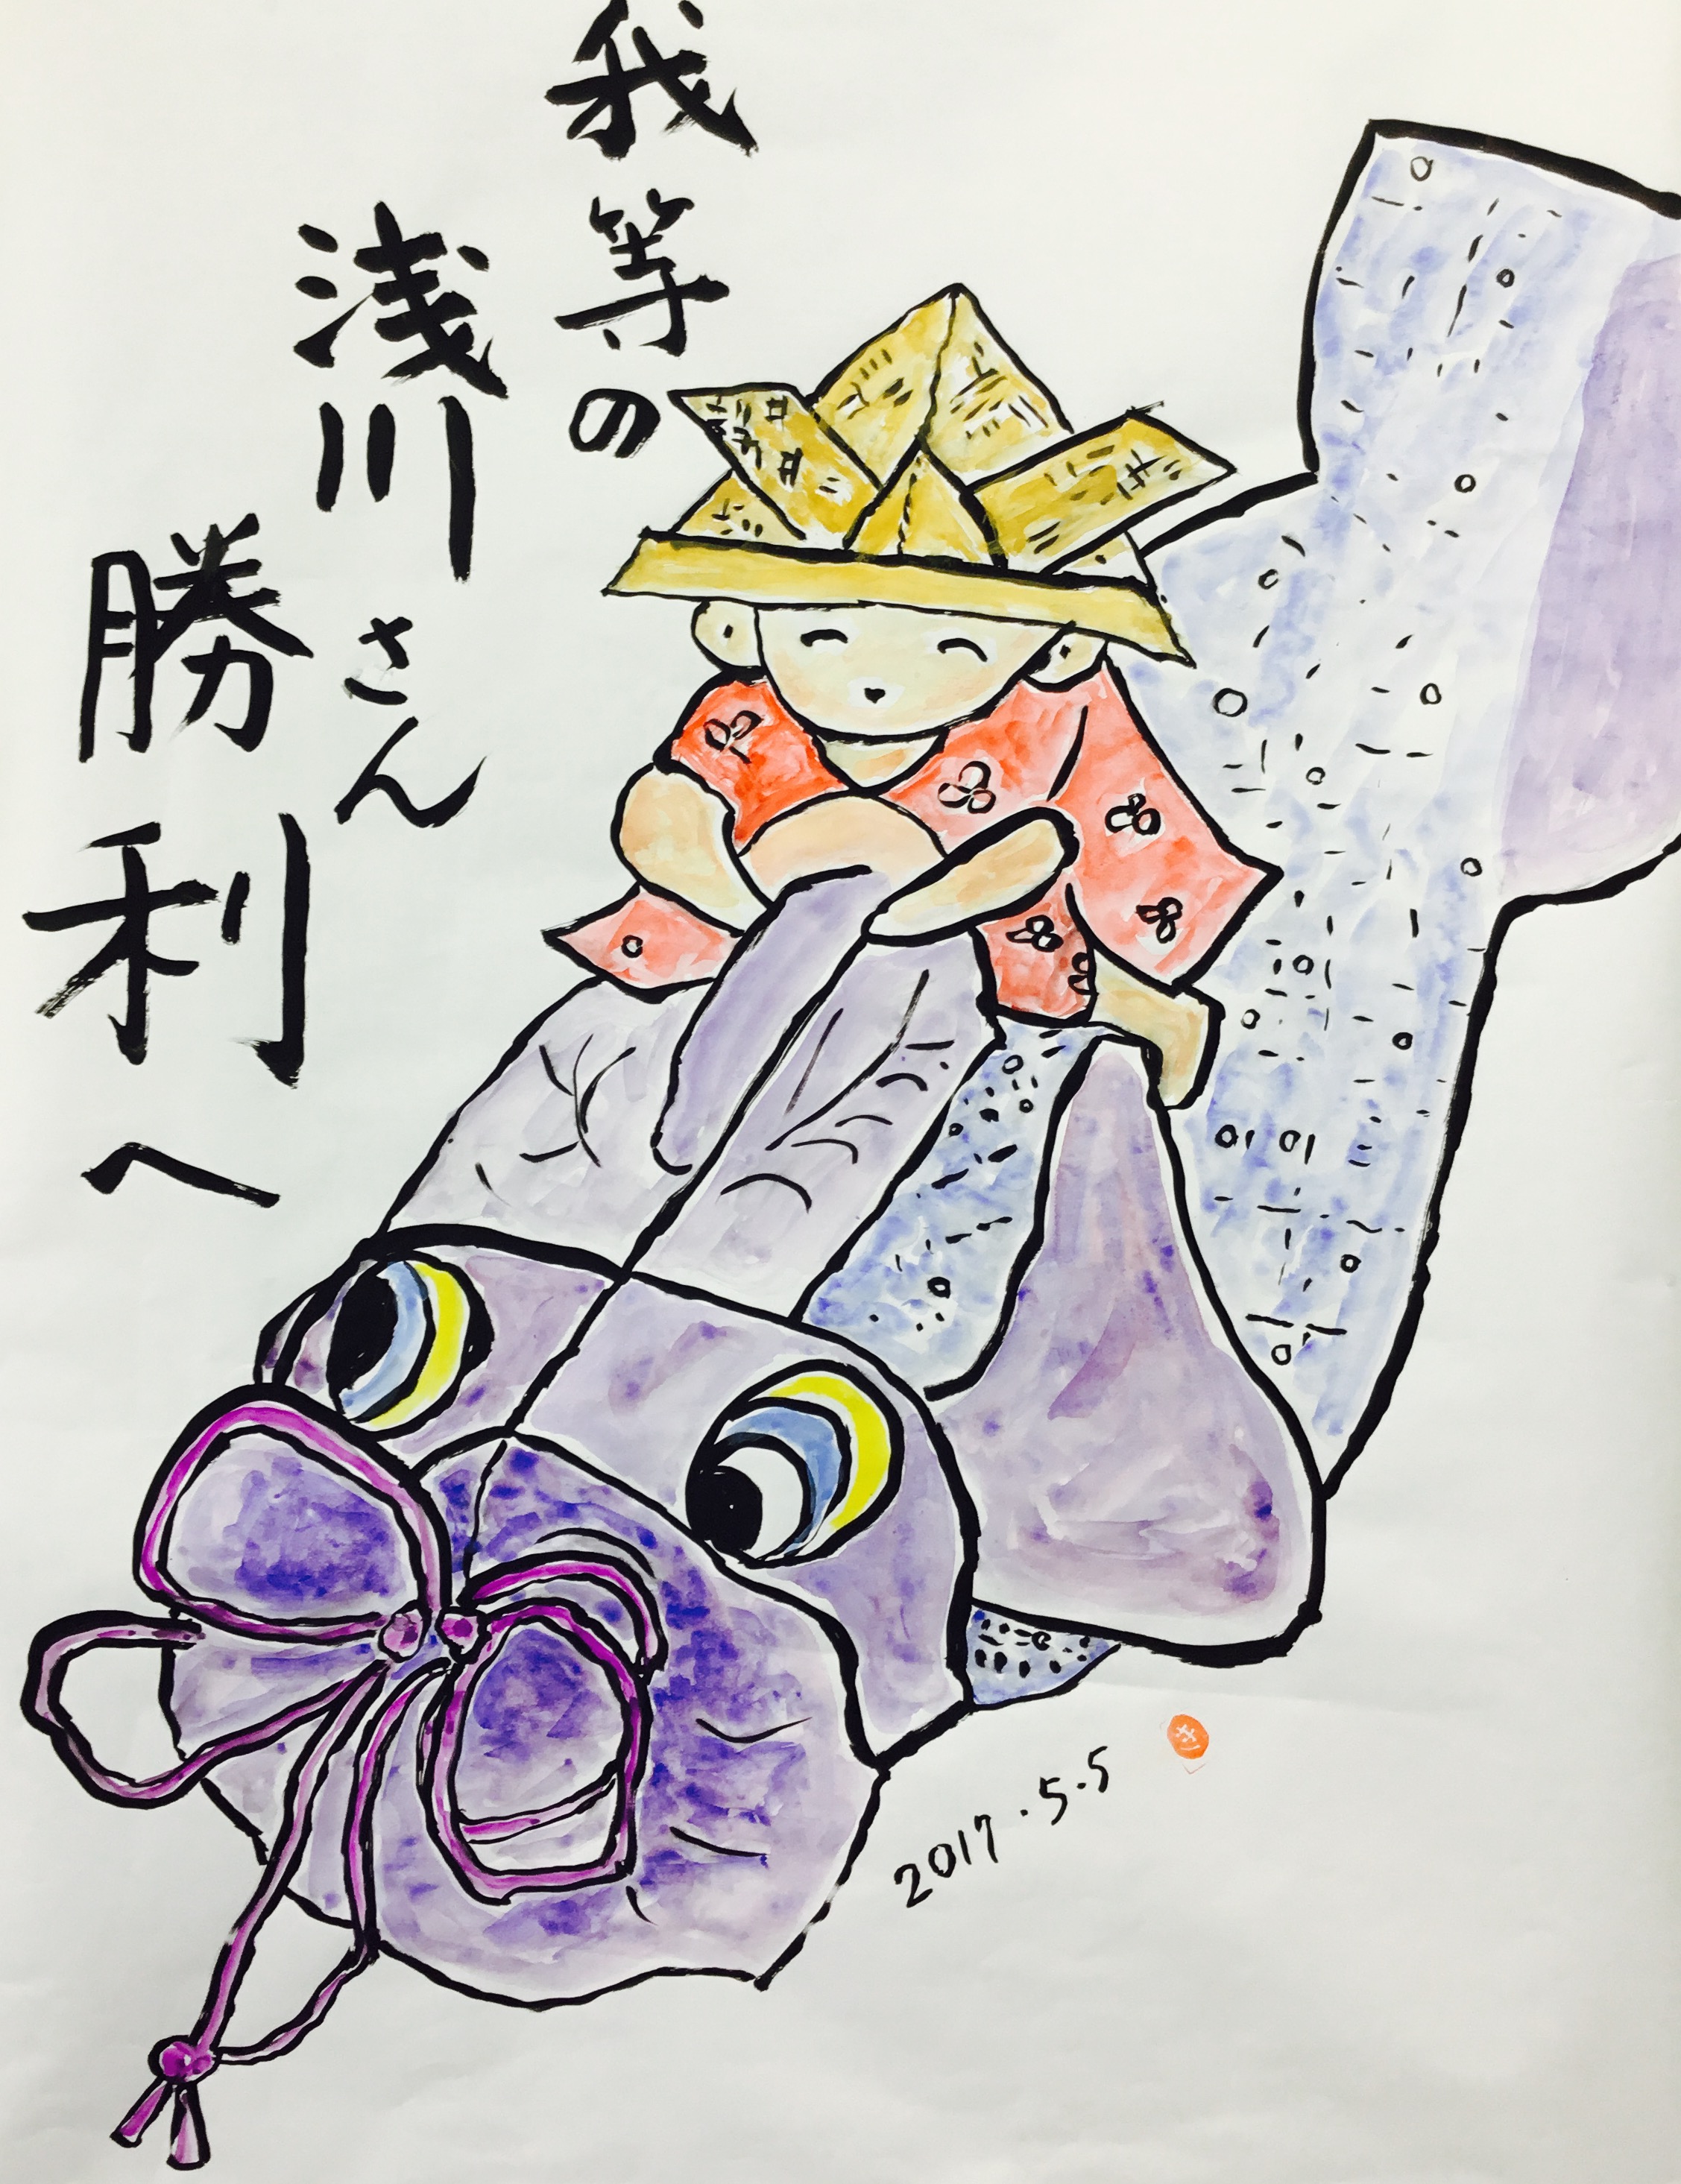 我等の
浅川さん
勝利へ
2017.5.5